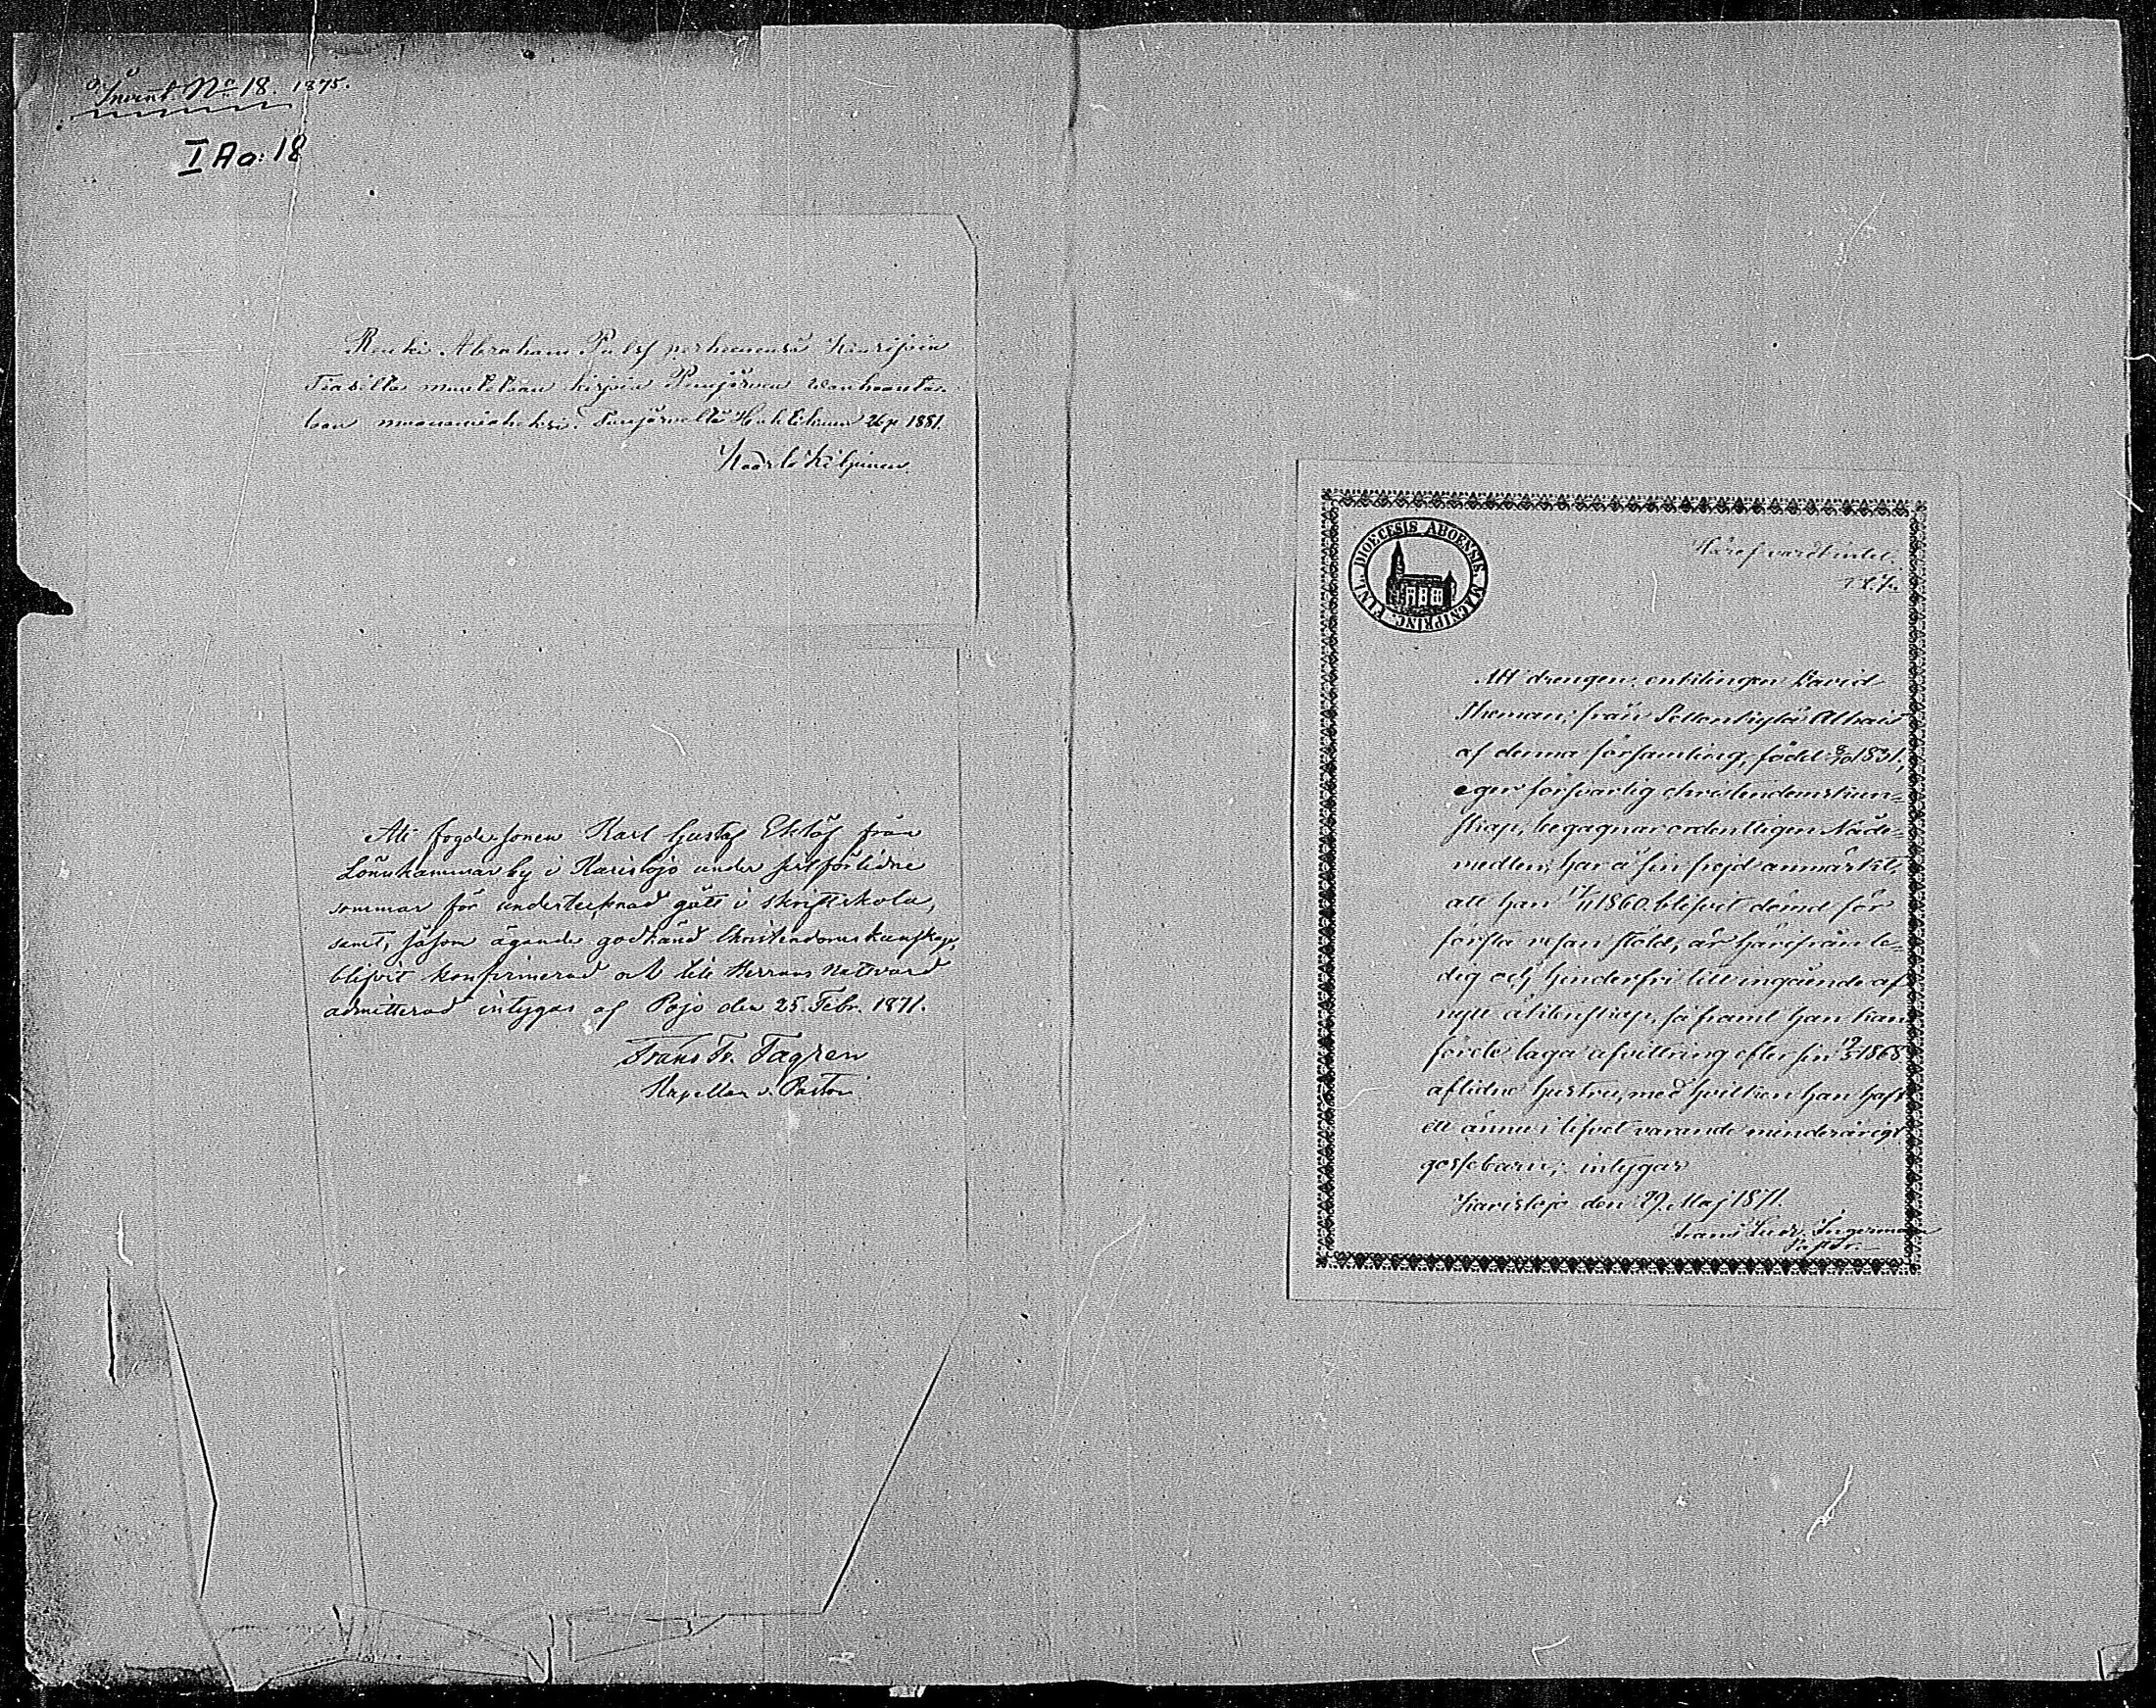 Invent. No 18. 1875.
I Aa: 18
Renki Abraham perheenensä Kaarijoin
muutetaan kirjoin
26 p 1881.
Kaarlo Kiljunen.
Att fogdesonen Karl Gustaf Eklöf från
Lönnhammar by i Karislojo under sistförlidne
sommar för undertecknad gått i skriftskola,
samt, såsom ägande godkänd Christendoms kunskap,
blifvit konfirmerad och till Herrans Nattvard
admitterad intygas af Pojo den 25. Febr. 1871.
Frans Fr. Fagren
Kapellan v. Pastor
DIOECESIS ABOENSIS MAGNI PRINC. FINL.
Att drengen, enklingen David
från
af denna församling, född 8/10 1831,
eger försvarlig christendomskun=
skap, begagnar ordentligen Nåde=
medlen, har å sin frejd anmärkt,
att han 1860 blifvit dömd för
första resan stöld, är härifrån le=
dig och hinderfri till ingående af
nytt äktenskap, så framt han kan
förete laga afvittring efter sin 1868
aflidne hustru, med hvilken han haft
ett ännu i lifvet varande minderårigt
gossebarn; intygar
Karislojo den 29. Maj 1871.
Frans Ludv.
Pastor.